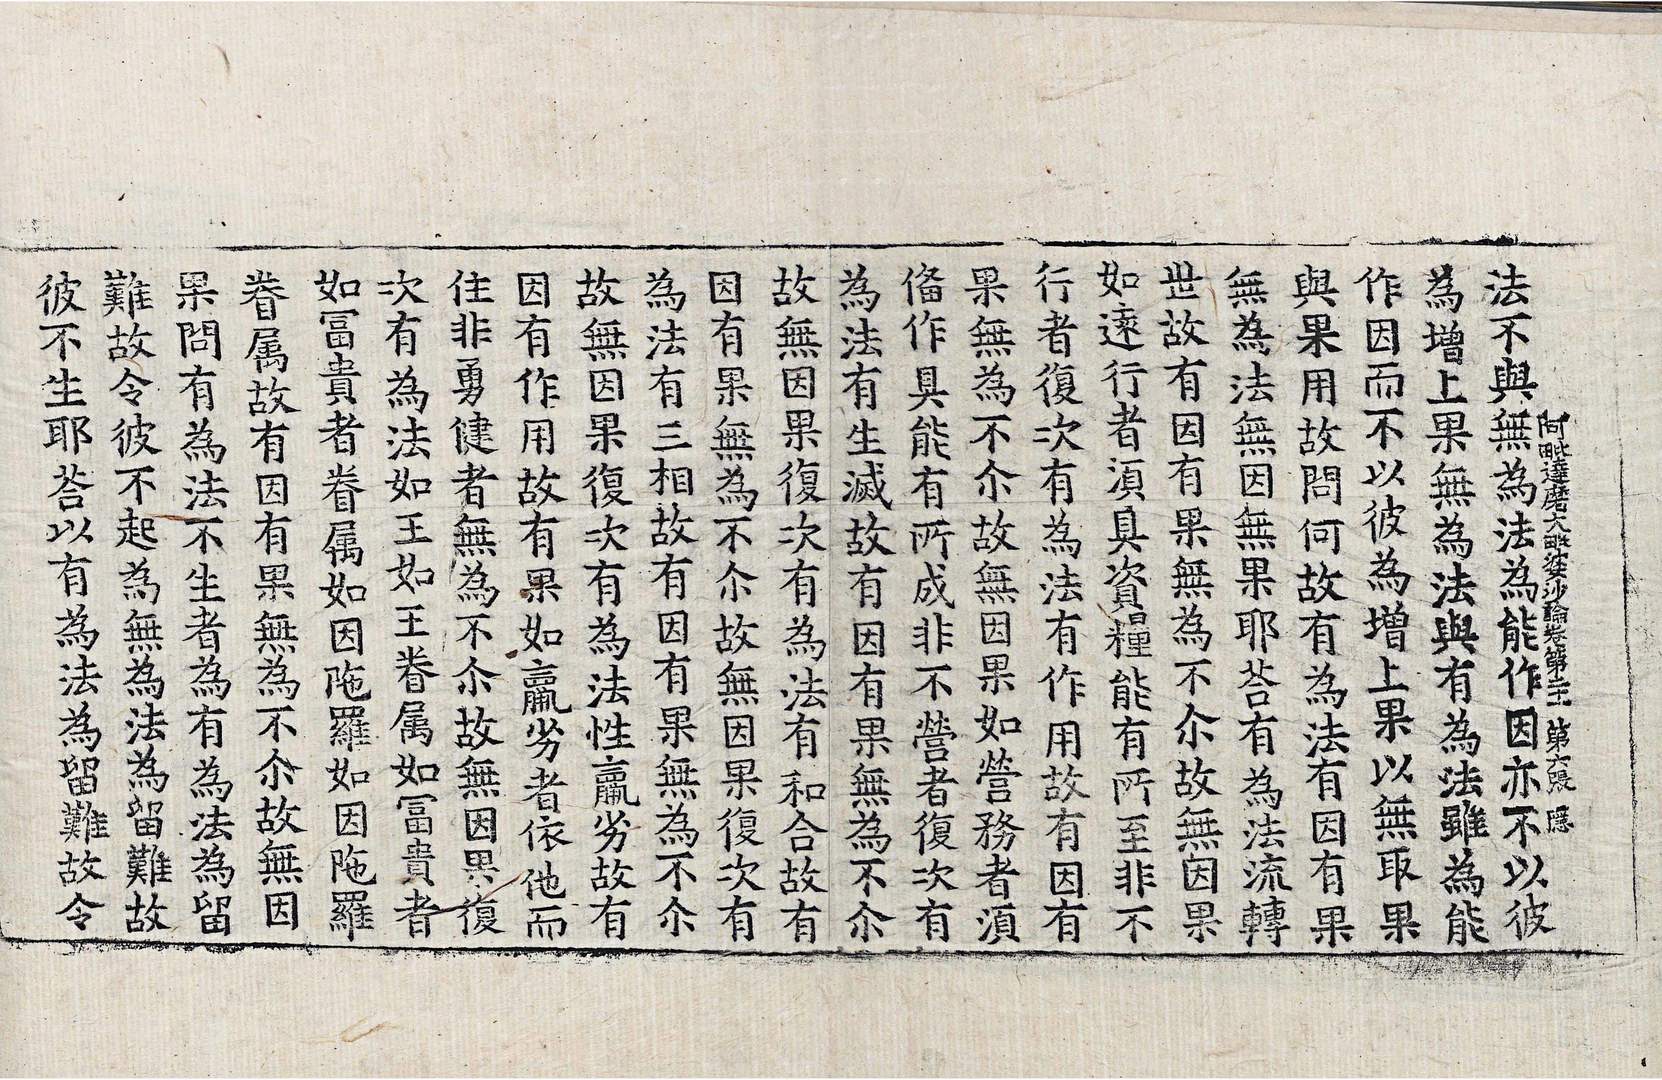 阿毗達磨大毗婆沙論卷第二十一 第六張 隱
法不與無為法為能作因亦不以彼
為增上果無為法與有為法雖為能
作因而不以彼為增上果以無取果
與果用故問何故有為法有因有果
無為法無因無果耶荅有為法流轉
世故有因有果無為不尒故無因果
如遠行者湏具資糧能有所至非不
行者復次有為法有作用故有因有
果無為不尒故無因果如營務者湏
俻作具能有所成非不營者復次有
為法有生滅故有因有果無為不尒
故無因果復次有為法有和合故有
因有果無為不尒故無因果復次有
為法有三相故有因有果無為不尒
故無因果復次有為法性羸劣故有
因有作用故有果如羸劣者依他而
住非勇健者無為不尒故無因果復
次有為法如王如王眷属如冨貴者
如冨貴者眷属如因陁羅如因陁羅
眷属故有因有果無為不尒故無因
果問有為法不生者為有為法為留
難故令彼不起為無為法為留難故
彼不生耶荅以有為法為留難故令